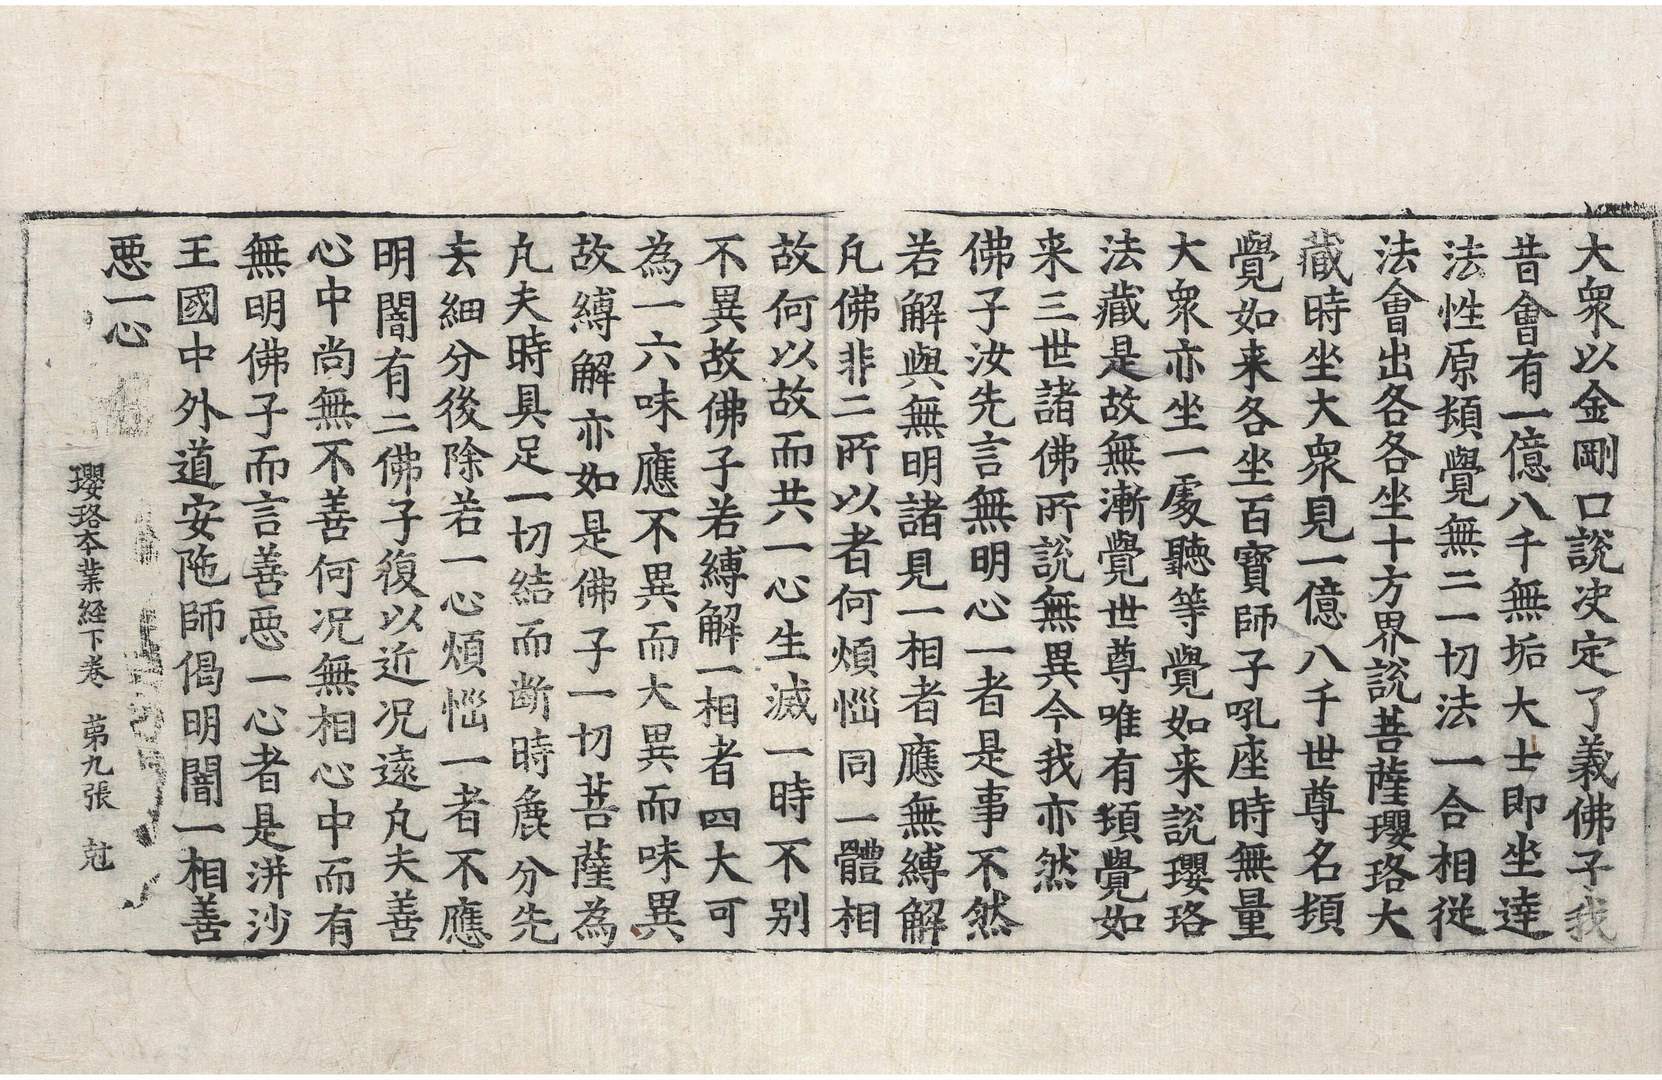 大衆以金剛口說决定了義佛子我
昔會有一億八千無垢大士即坐達
法性原頓覺無二一切法一合相從
法會出各各坐十方界說菩薩瓔珞大
藏時坐大衆見一億八千世尊名頓
覺如来各坐百寶師子吼座時無量
大衆亦坐一處聽等覺如来說瓔珞
法藏是故無漸覺世尊唯有頓覺如
来三世諸佛所說無異今我亦然
佛子汝先言無明心一者是事不然
若解與無明諸見一相者應無縛解
凡佛非二所以者何煩惱同一體相
故何以故而共一心生滅一時不别
不異故佛子若縛解一相者四大可
為一六味應不異而大異而味異
故縛解亦如是佛子一切菩薩為
凡夫時具足一切結而斷時麁分先
去細分後除若一心煩惱一者不應
明闇有二佛子復以近况遠凡夫善
心中尚無不善何况無相心中而有
無明佛子而言善惡一心者是洴沙
王國中外道安陁師偈明闇一相善
惡一心
瓔珞本業経下卷　苐九張